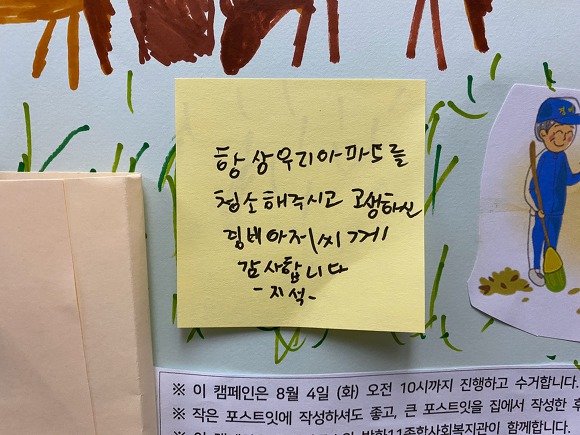 항상 우리아파트를
청소해주시고 고생하신
경비아저씨께
감사합니다
-지석-
※ 이 캠페인은 8월 4일 (화) 오전 10시까지 진행하고 수거합니다.
※ 작은 포스트잇에 작성하셔도 좋고, 큰 포스트잇을 집에서 작성한 후
방화11종합사회복지관이 함께합니다.